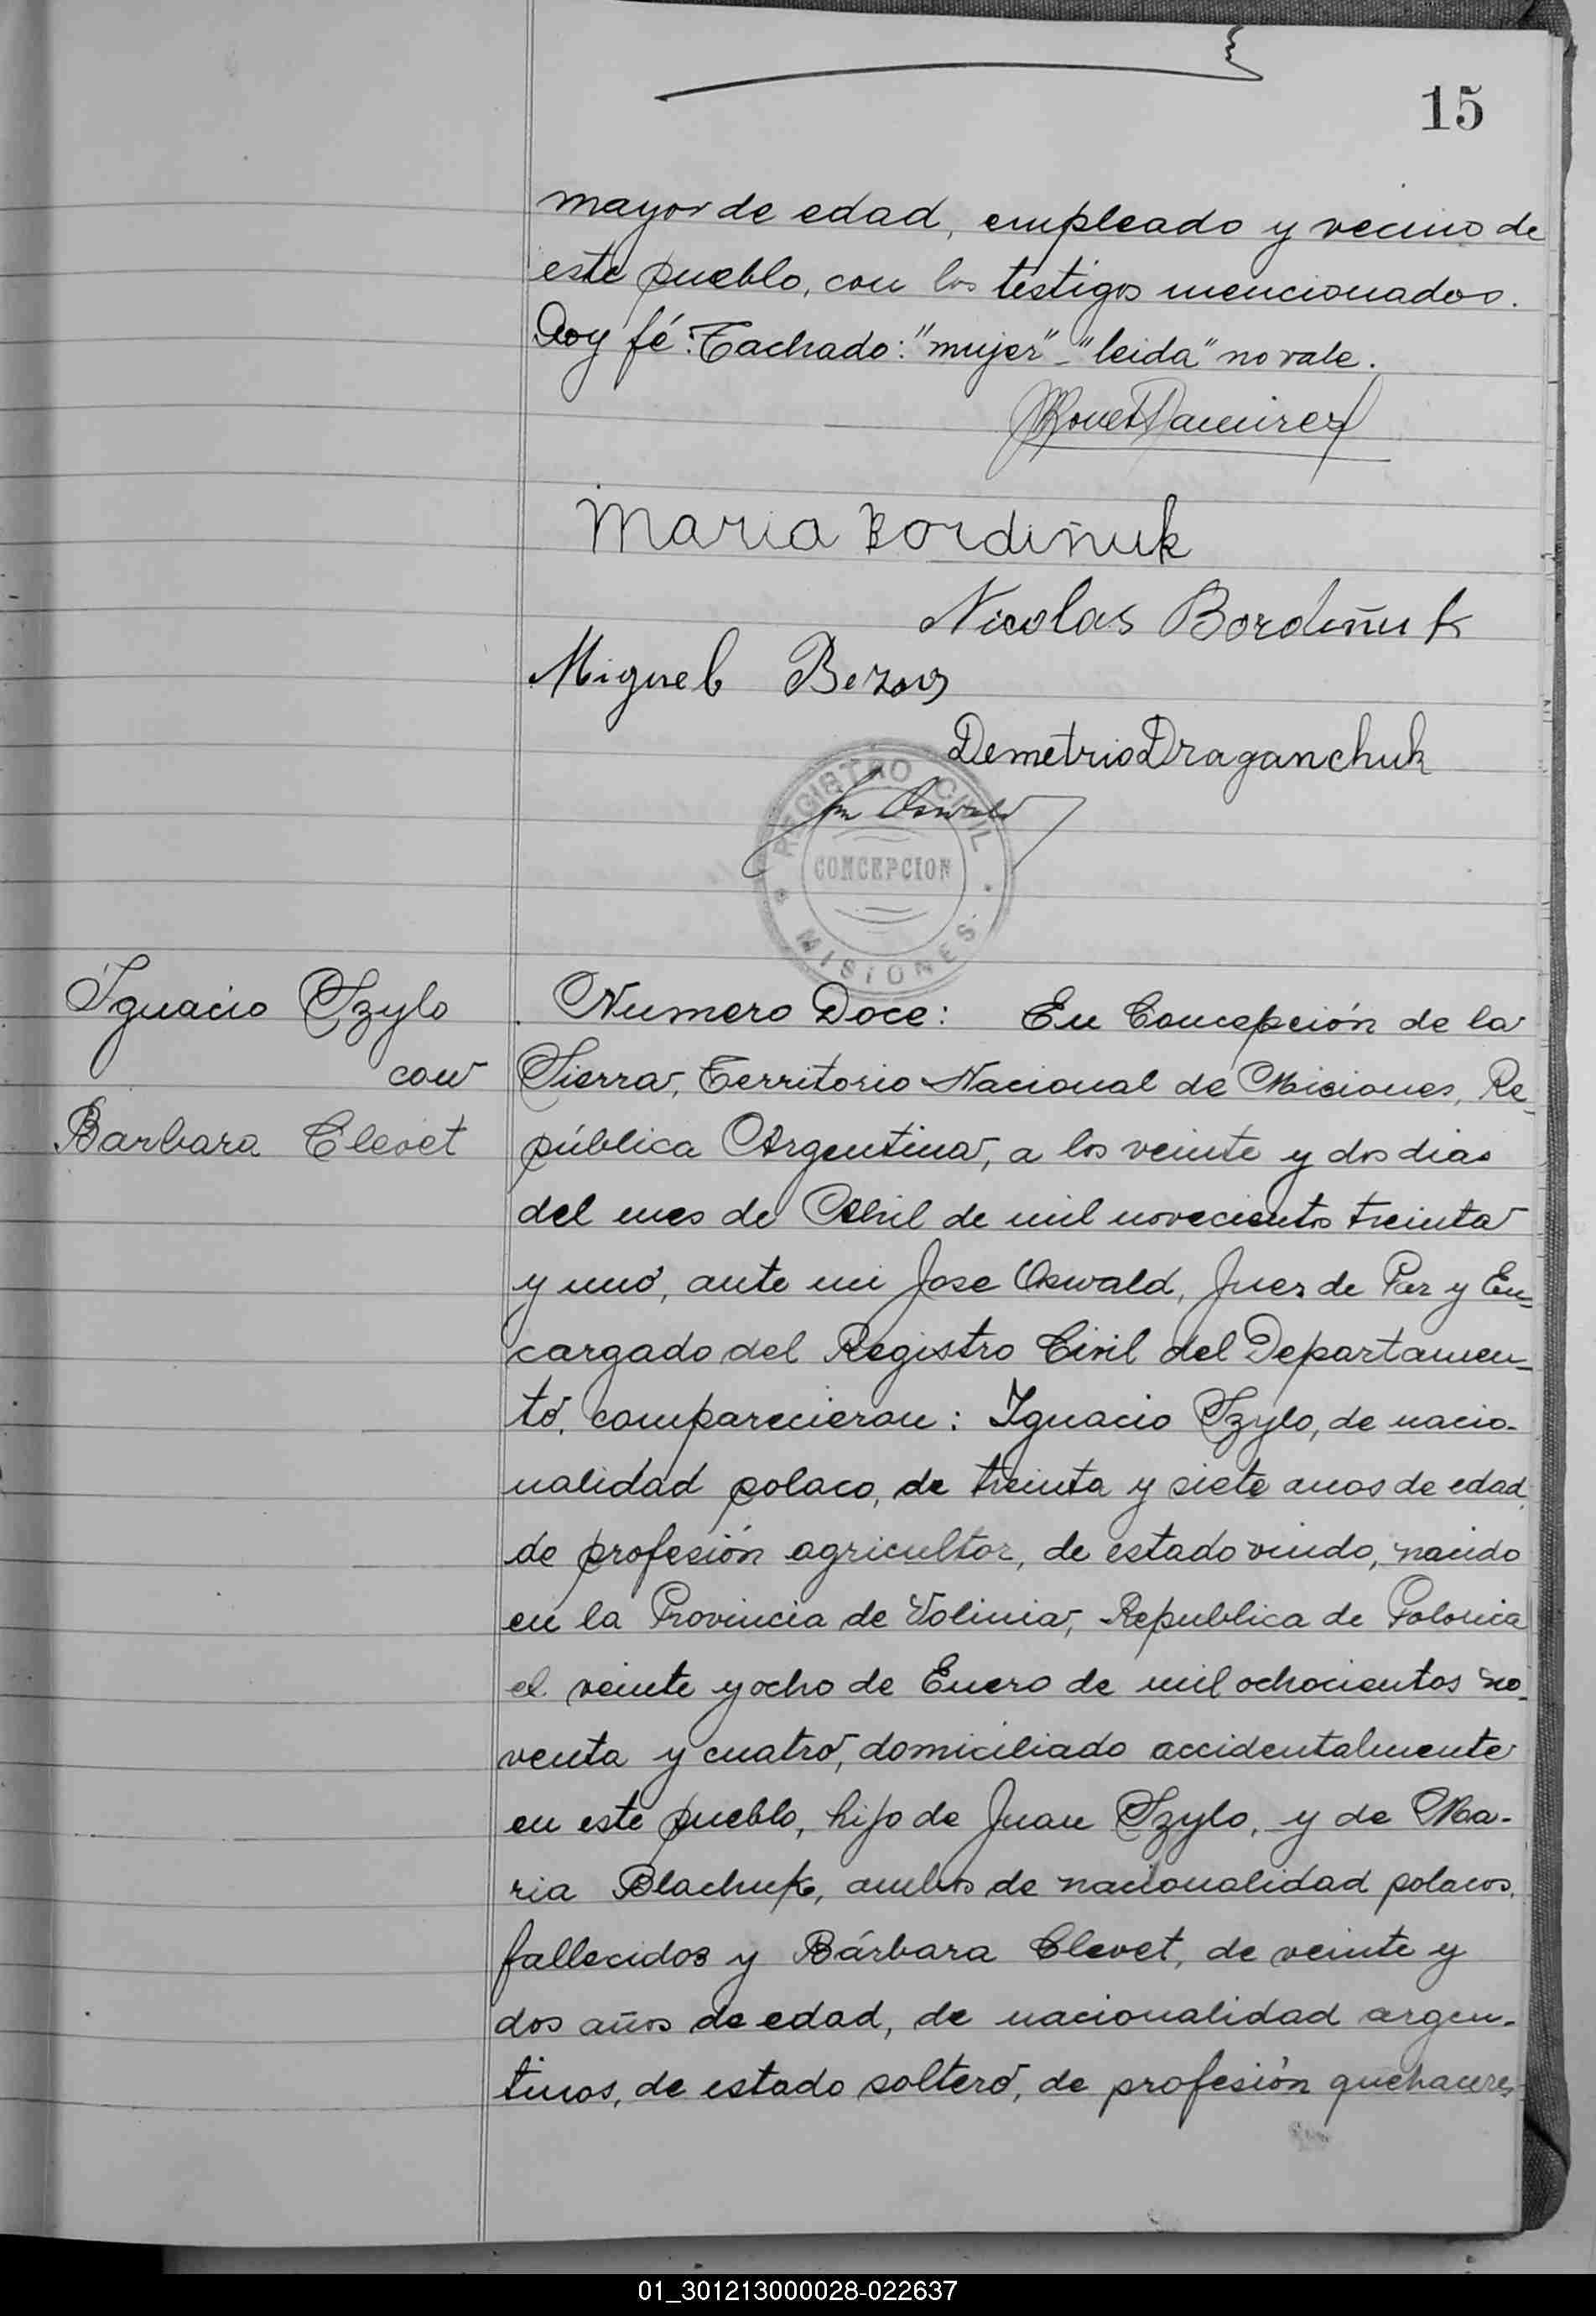 15
mayor de edad, empleado y vecino de
este pueblo, con los testigos mencionados.
Doy fé. Tachado: "mujer" - "leida" no vale.
Ramirez
Maria Bordiñuk
Nicolas Bordiñuk
Miguel
Demetrio Draganchuk
Oswald
REGISTRO CIVIL
CONCEPCION
MISIONES
Ignacio Szylo
con
Barbara Clevet
Numero Doce: En Concepción de la
Sierra, Territorio Nacional de Misiones, Re-
pública Argentina, a los veinte y dos dias
del mes de Abril de mil novecientos treinta
y uno, ante mi Jose Oswald, Juez de Paz y En=
cargado del Registro Civil del Departamen=
to, comparecieron: Ignacio Szylo, de nacio-
nalidad polaco, de treinta y siete anos de edad,
de profesión agricultor, de estado viudo, nacido
en la Provincia de Volinia, Republica de Polonia
el veinte y ocho de Enero de mil ochocientos no-
venta y cuatro, domiciliado accidentalmente
en este pueblo, hijo de Juan Szylo, y de Ma-
ria Blachuk, ambos de nacionalidad polacos,
fallecidos y Bárbara Clevet, de veinte y
dos años de edad, de nacionalidad argen-
tinos, de estado soltero, de profesión quehaceres
01_301213000028-022637